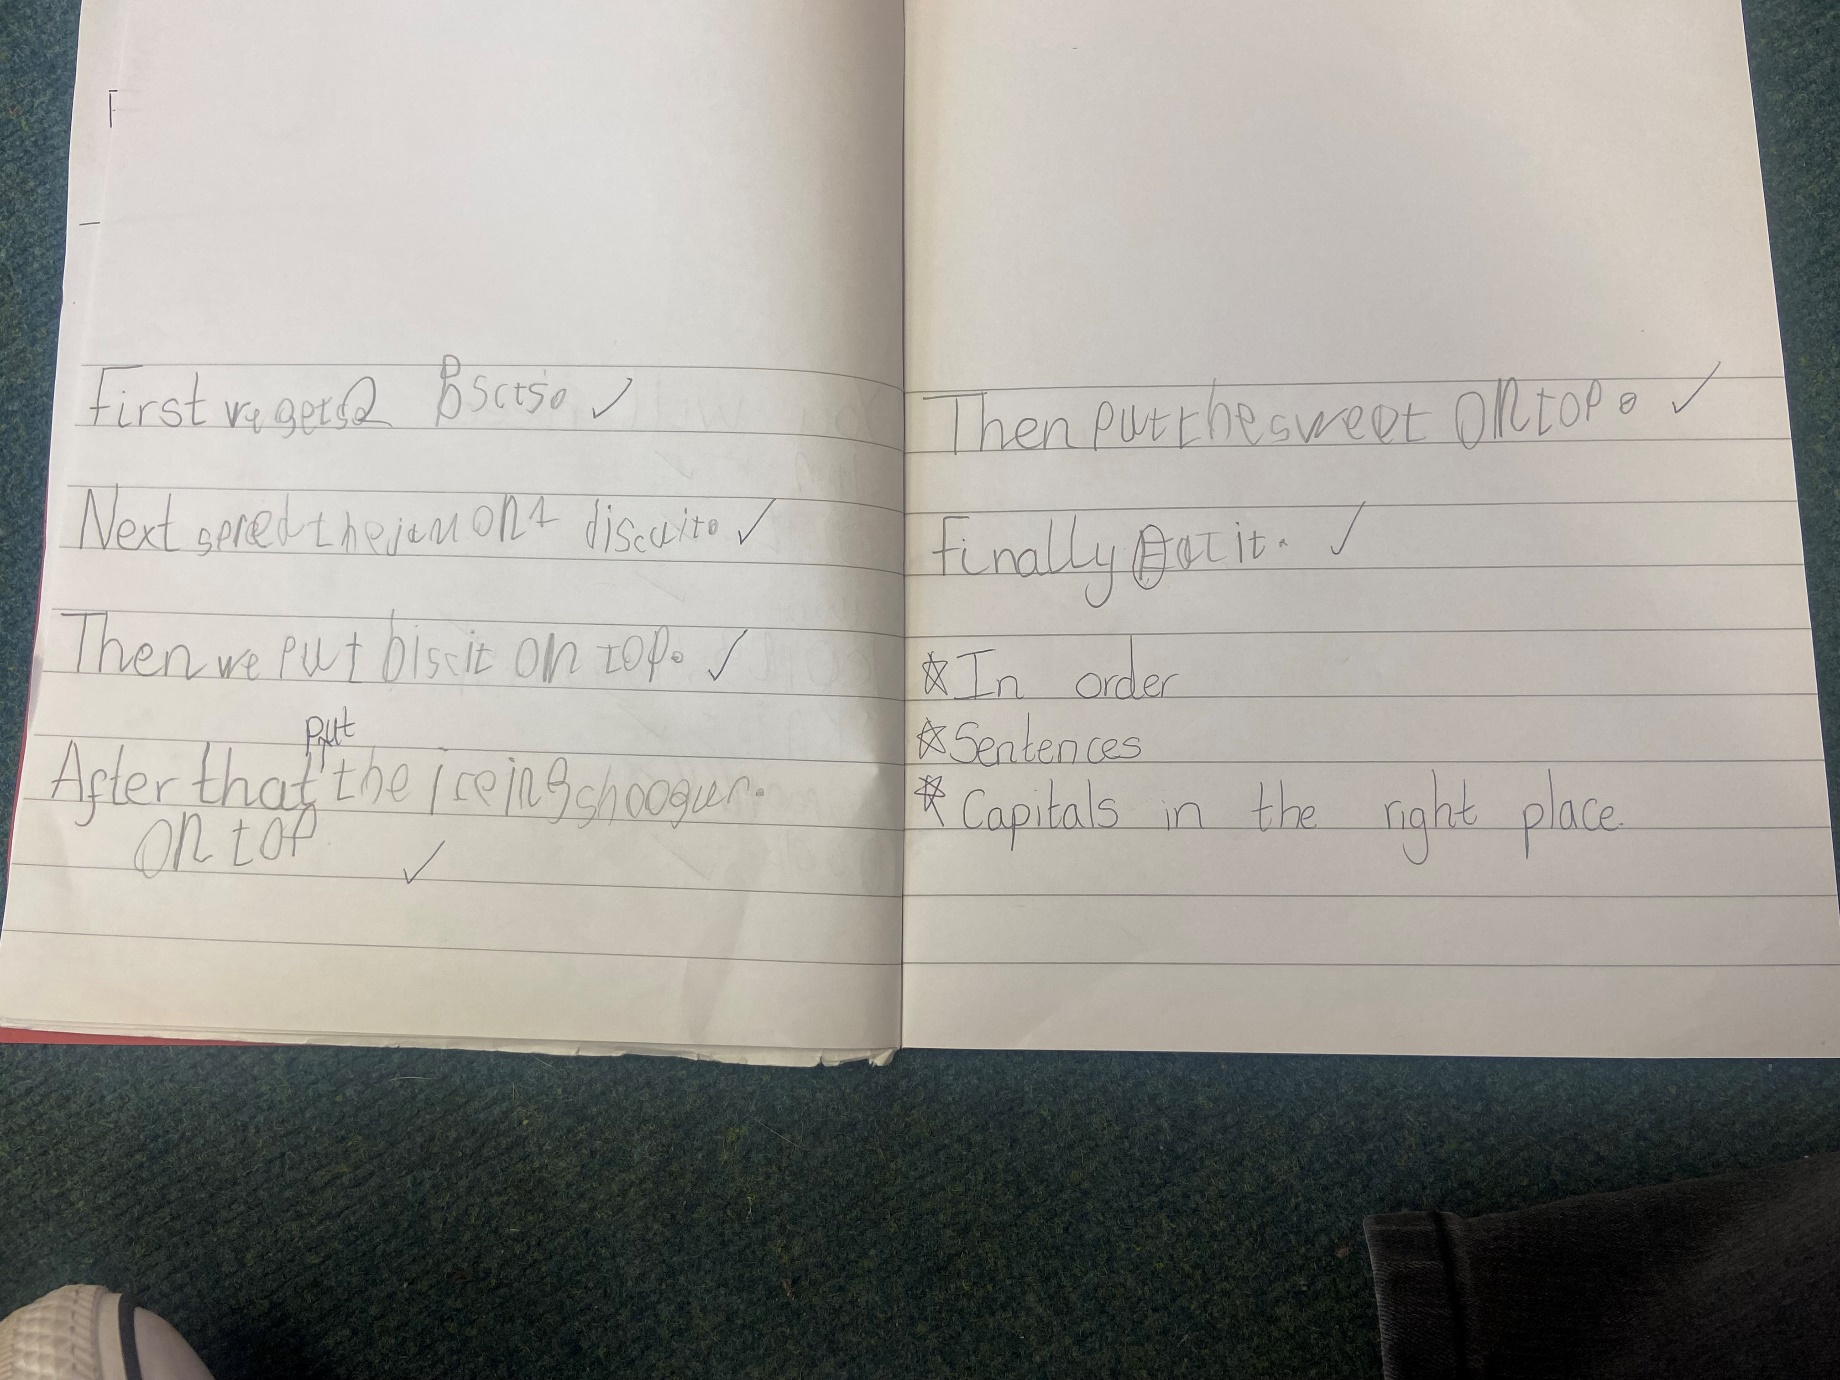 First we gets 2 Bscts. ✓
Next spred the jam on 1 discuit. ✓
Then we put biscit on top. ✓
put
After that the iceing shoogur.
on top ✓
Then put the sweet on top. ✓
Finally Eat it. ✓
☆ In order
☆ Sentences
☆ Capitals in the right place.